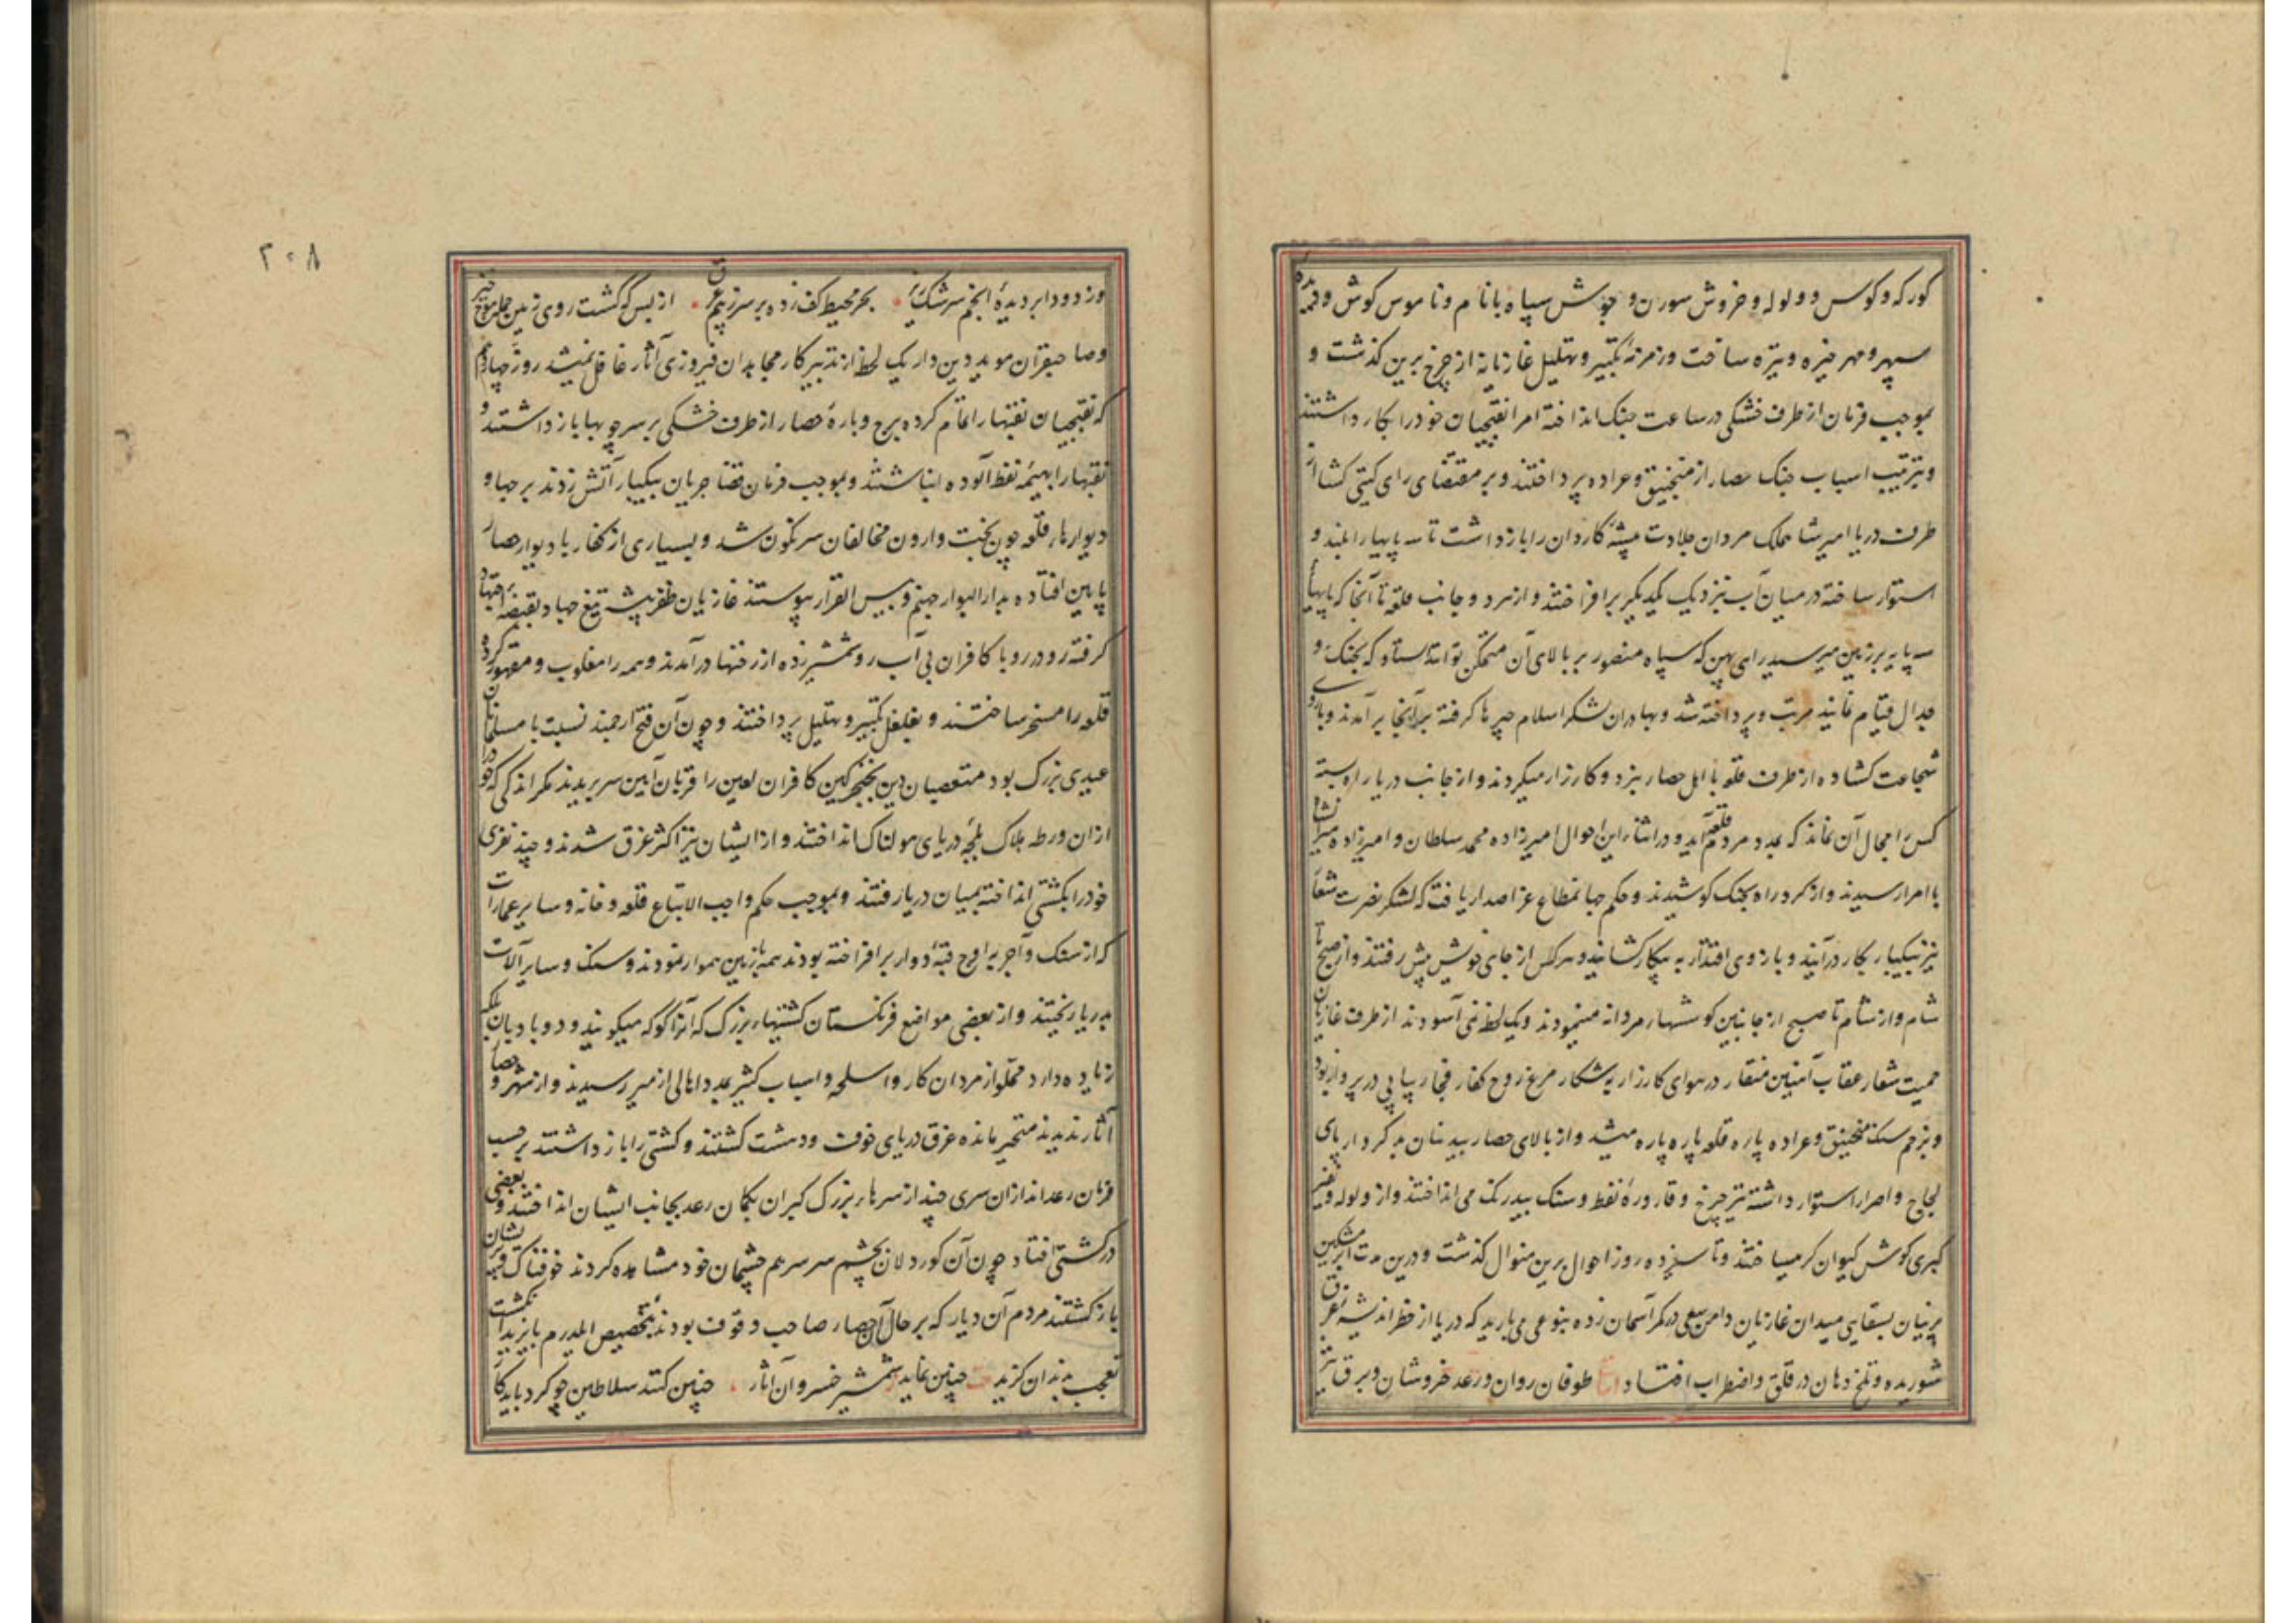 کورکه و کوس و ولوله و خروش سورن و جوش سپاه بانام و ناموس کوش
سپهر و مهر خیره و تیره ساخت و زمزمهٔ تکبیر و تهلیل غازیان از چرخ برین کذشت و
بموجب فرمان از طرف خشکی در ساعت جنک انداخته امرا نقبچیان خود را بکار داشتند
و بترتیب اسباب جنک حصار از منجنیق و عراده پرداختند و بر مقتضای رای کیتی کشا از
طرف دریا امیر شاه ملک مردان جلادت پیشهٔ کاردان را بازداشت تا سه پایها را بلند و
استوار ساخته در میان آب نزدیک یکدیکر برافراختند و از هر دو جانب قلعه تا آنجا که پایهای
سه پایه بر زمین میرسید رای پهن که سپاه منصور بر بالای آن متمکن تواند ستاد که بجنک و
جدال قیام نمایند مرتب و پرداخته شد و بهادران لشکر اسلام چپرها کرفته بر آنجا برآمدند و بازوی
شجاعت کشاده از طرف قلعه با اهل حصار نبرد و کارزار میکردند و از جانب دریا راه بسته
کس را مجال آن نماند که بمدد مردم قلعه آید و در اثناء این احوال امیرزاده محمد سلطان و امیرزاده میرانشاه
با امرا رسیدند و از کرد راه بجنک کوشیدند و حکم جهانمطاع عز اصدار یافت که لشکر نصرت شعار
نیز بیکبار بکار درآیند و بازوی اقتدار به پیکار کشایند و هرکس از جای خویش پیش رفتند و از صبح تا
شام و از شام تا صبح از جانبین کوششهاء مردانه مینمودند و یک لحظه نمی آسودند از طرف غازیان
حمیت شعار عقاب آهنین منقار در هوای کارزار به شکار مرغ روح کفار فجار پیاپی در پرواز بود
و بزخم سنک منجنیق و عراده پاره قلعه پاره پاره میشد و از بالای حصار بیدینان بدکردار پای
لجاج و اصرار استوار داشته تیر چرخ و قاروره نفط و سنک بیدرنک می انداختند و از ولوله و نفیر
کبری کوش کیوان کر میساختند و تا سیزده روز احوال برین منوال کذشت و درین مدت ابر مشکین
پرنیان بسقایی میدان غازیان دامن سعی در کمر آسمان زده بنوعی می بارید که دریا از خطر اندیشه غرق
شوریده و تلخ دهان در قلق و اضطراب افتاد طوفان روان و رعد خروشان و برق تیز
۲۰۸
وز دود ابر دیدهٔ انجم سرشک ریز بحر محیط کف زده بر سر ز بیم غرق از بس که کشت روی زمین جمله موج خیز
و صاحبقران موید دین دار یک لحظه از تدبیر کار مجاهدان فیروزی آثار غافل نمیشد روز چهاردهم
که نقبچیان نقبها را تمام کرده برج و بارهٔ حصار از طرف خشکی بر سر چوبها بازداشتند و
نقبها را بهیمهٔ نفط آلوده انباشتند و بموجب فرمان قضا جریان بیکبار آتش زدند برجها و
دیوارهاء قلعه چون بخت وارون مخالفان سرنکون شد و بسیاری از کفار با دیوار حصار
پایین افتاده بدار البوار جهنم و بیس القرار پیوستند غازیان ظفر پیشه تیغ جهاد بقبضهٔ اجتهاد
کرفته رو در رو با کافران بی آب رو شمشیر زده از رخنها درآمدند و همه را مغلوب و مقهور کرده
قلعه را مسخر ساختند و بغلغل تکبیر و تهلیل پرداختند و چون آن فتح ارجمند نسبت با مسلمانان
عیدی بزرک بود متعصبان دین بخنجر کین کافران لعین را قربان آیین سر بریدند مکر اندکی که خود را
ازان ورطه هلاک بلجه دریای هولناک انداختند و از ایشان نیز اکثر غرق شدند و چند نفری
خود را بکشتی انداخته بمیان دریا رفتند و بموجب حکم واجب الاتباع قلعه و خانه و سایر عمارات
که از سنک و آجر بر اوج قبهٔ دوار برافراخته بودند همه با زمین هموار نمودند و سنک و سایر آلات
بدریا ریختند و از بعضی مواضع فرنکستان کشتیهاء بزرک که آنرا کوکه میکویند و دو بادبان بلکه
زیاده دارد مملو از مردان کار و اسلحه و اسباب کثیر بمدد اهالی ازمیر رسیدند و از شهر و حصار
آثار ندیدند متحیر مانده غرق دریای خوف و دهشت کشتند و کشتی را بازداشتند بر حسب
فرمان رعداندازان سری چند از سرهاء بزرک کبران بکمان رعد بجانب ایشان انداختند و بعضی
در کشتی افتاد چون آن کوردلان بچشم سر سر هم چشمان خود مشاهده کردند خوفناک
بازکشتند مردم آن دیار که بر حال آن حصار صاحب وقوف بودند بتخصیص ایلدرم بایزید انکشت
تعجب بدندان کزید چنین نماید شمشیر خسروان آثار چنین کنند سلاطین چو کرد باید کار